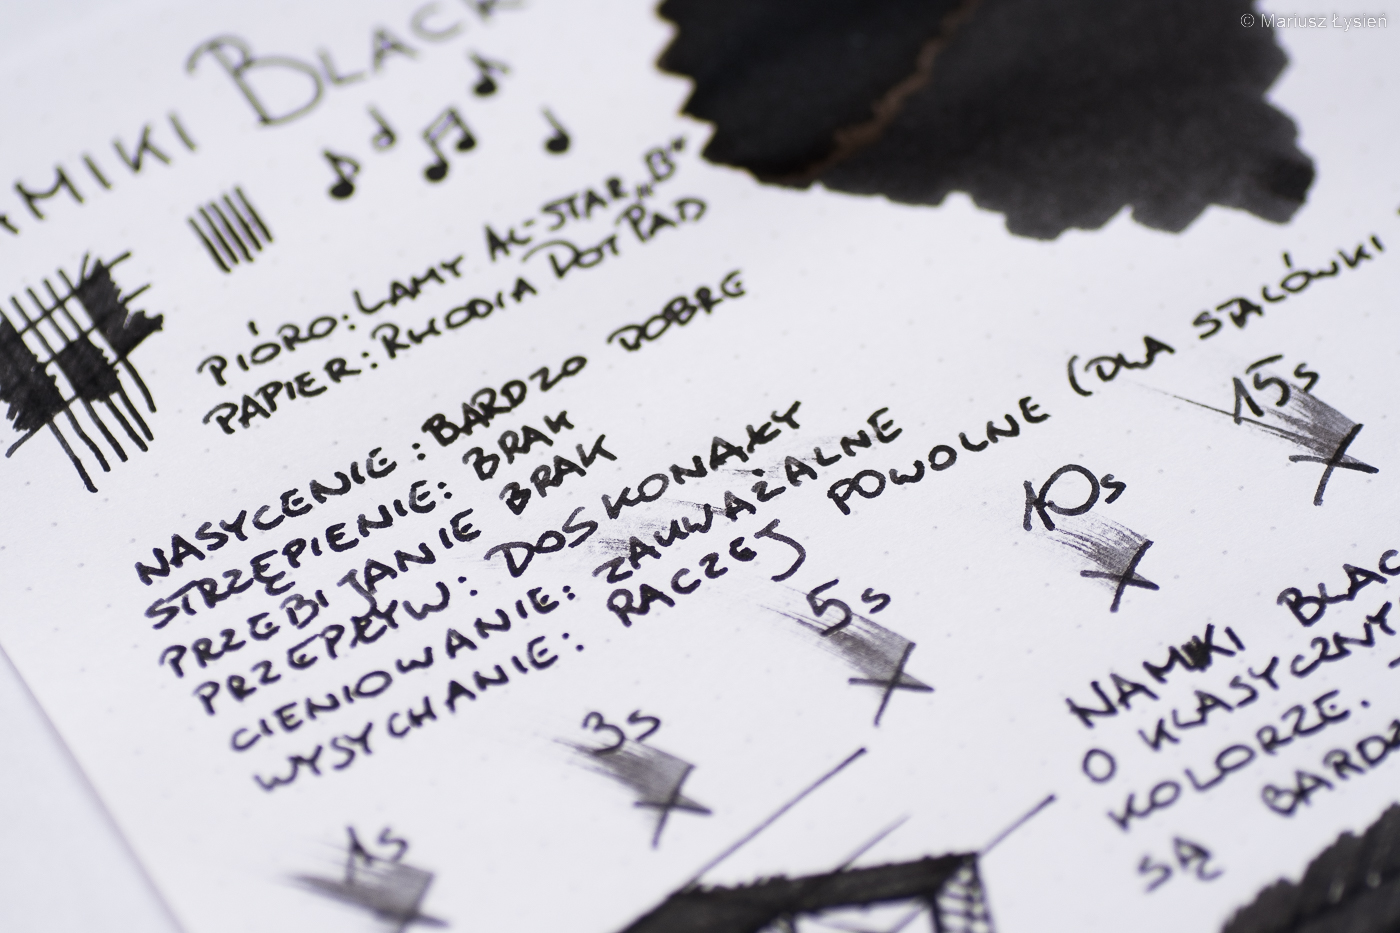 © Mariusz Łysień
NAMIKI BLACK
PIÓRO: LAMY AL-STAR „B"
PAPIER: RHODIA DOT PAD
NASYCENIE: BARDZO DOBRE
STRZĘPIENIE: BRAK
PRZEBIJANIE BRAK
PRZEPŁYW: DOSKONAŁY
CIENIOWANIE: ZAUWAŻALNE
WYSYCHANIE: RACZEJ POWOLNE (DLA STALÓWKI
1s 3s 5s 10s 15s
NAMIKI BLAC
O KLASYCZNY
KOLORZE.
SĄ BARDZ